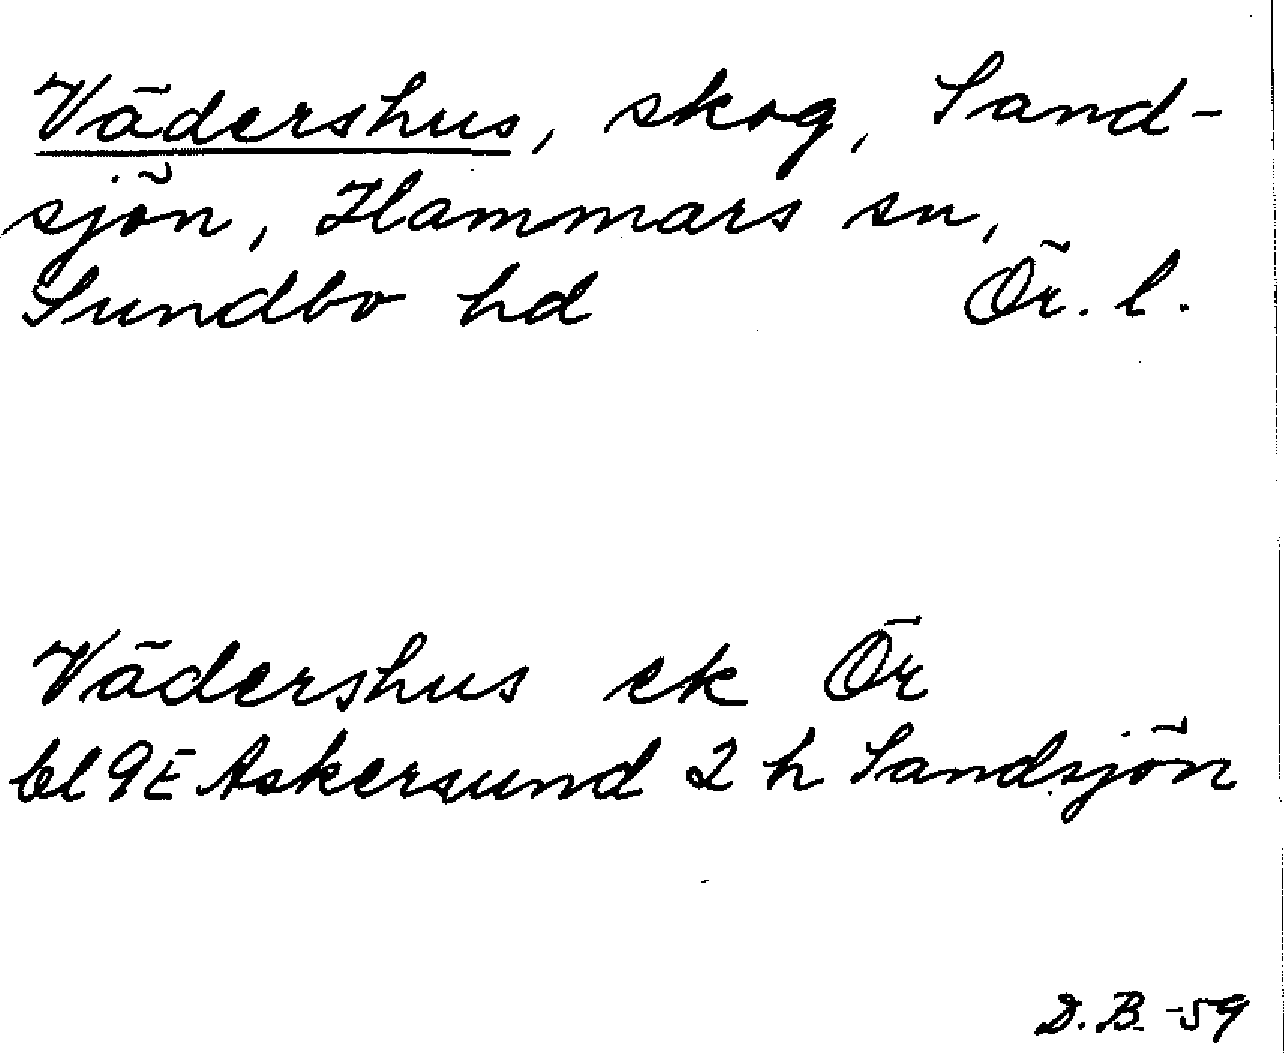 Vädershus, skog, Sand-
sjön, Hammars sn,
Sundbo hd Ör. l.
Vädershus ek Ör
bl 9E Askersund 2 h Sandsjön
D.B. -59